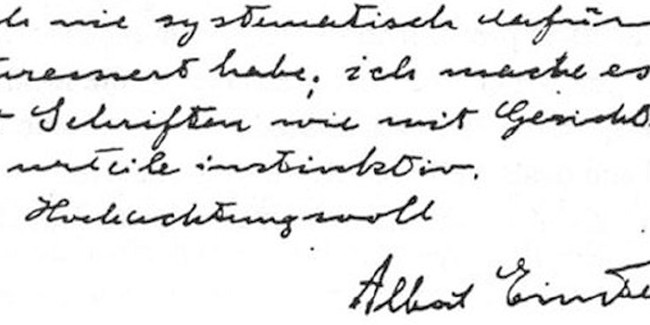 nie systematisch dafür
ressiert habe; ich mache es
Schriften wie mit Gesicht
urteile instinktiv.
Hochachtungsvoll
Albert Einste